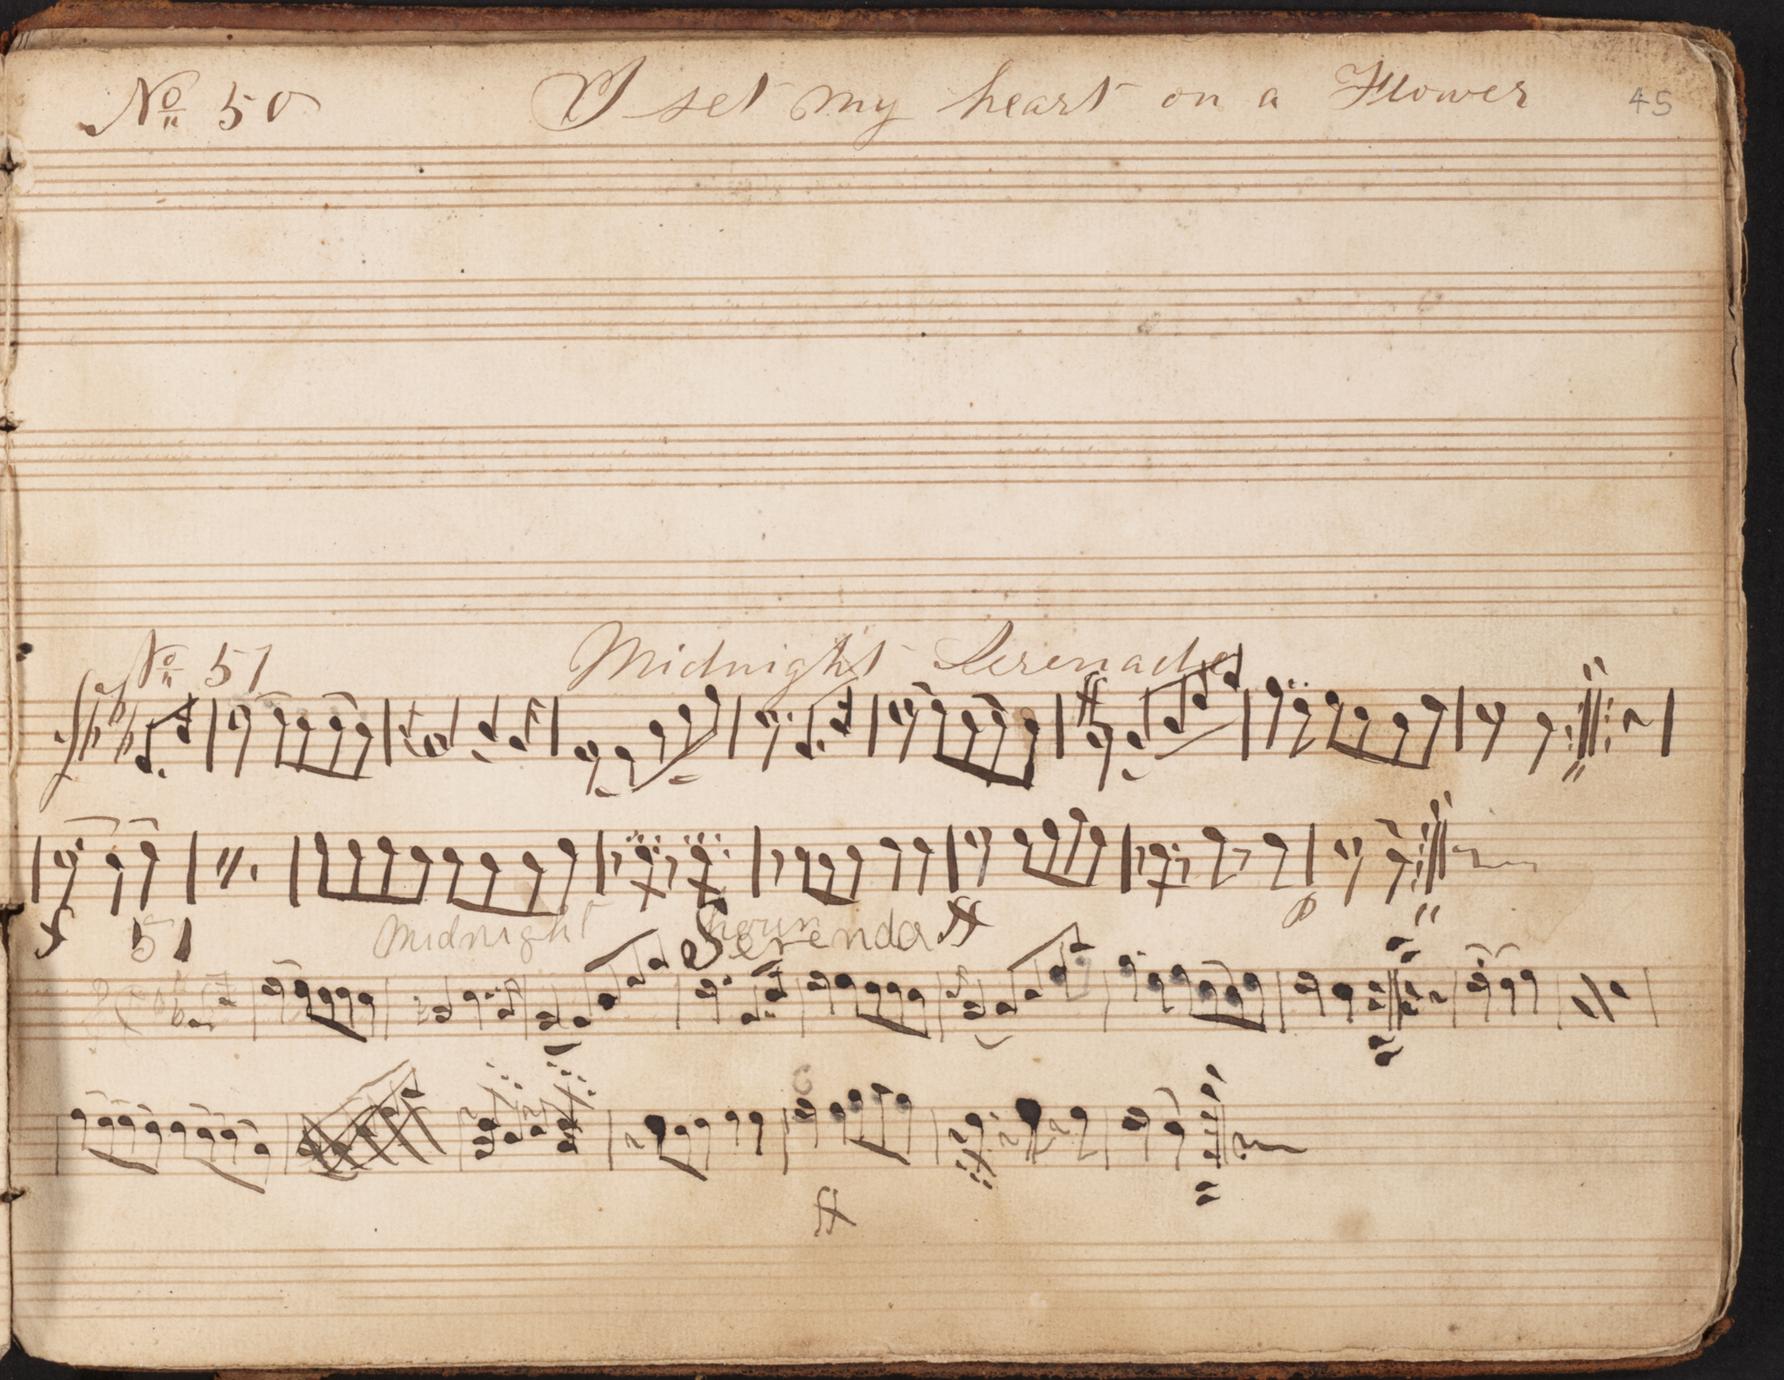 No 50 I set my heart on a Flower 45
No 51 Midnight Serenade
51 Midnight Serenda ff
ff